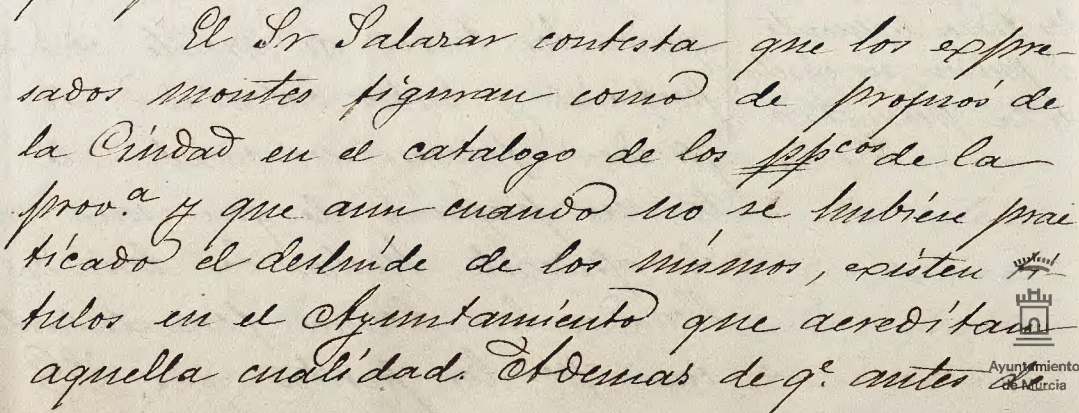 El Sr Salazar contesta que los expre-
sados montes figuran como de propios de
la Ciudad en el catalogo de los ppcos de la
prov.a y que aun cuando no se hubiese prac
ticado el deslinde de los mismos, existen tí-
tulos en el Ayuntamiento que acreditan
aquella cualidad. Ademas de q.e antes de
Ayuntamiento
de Murcia